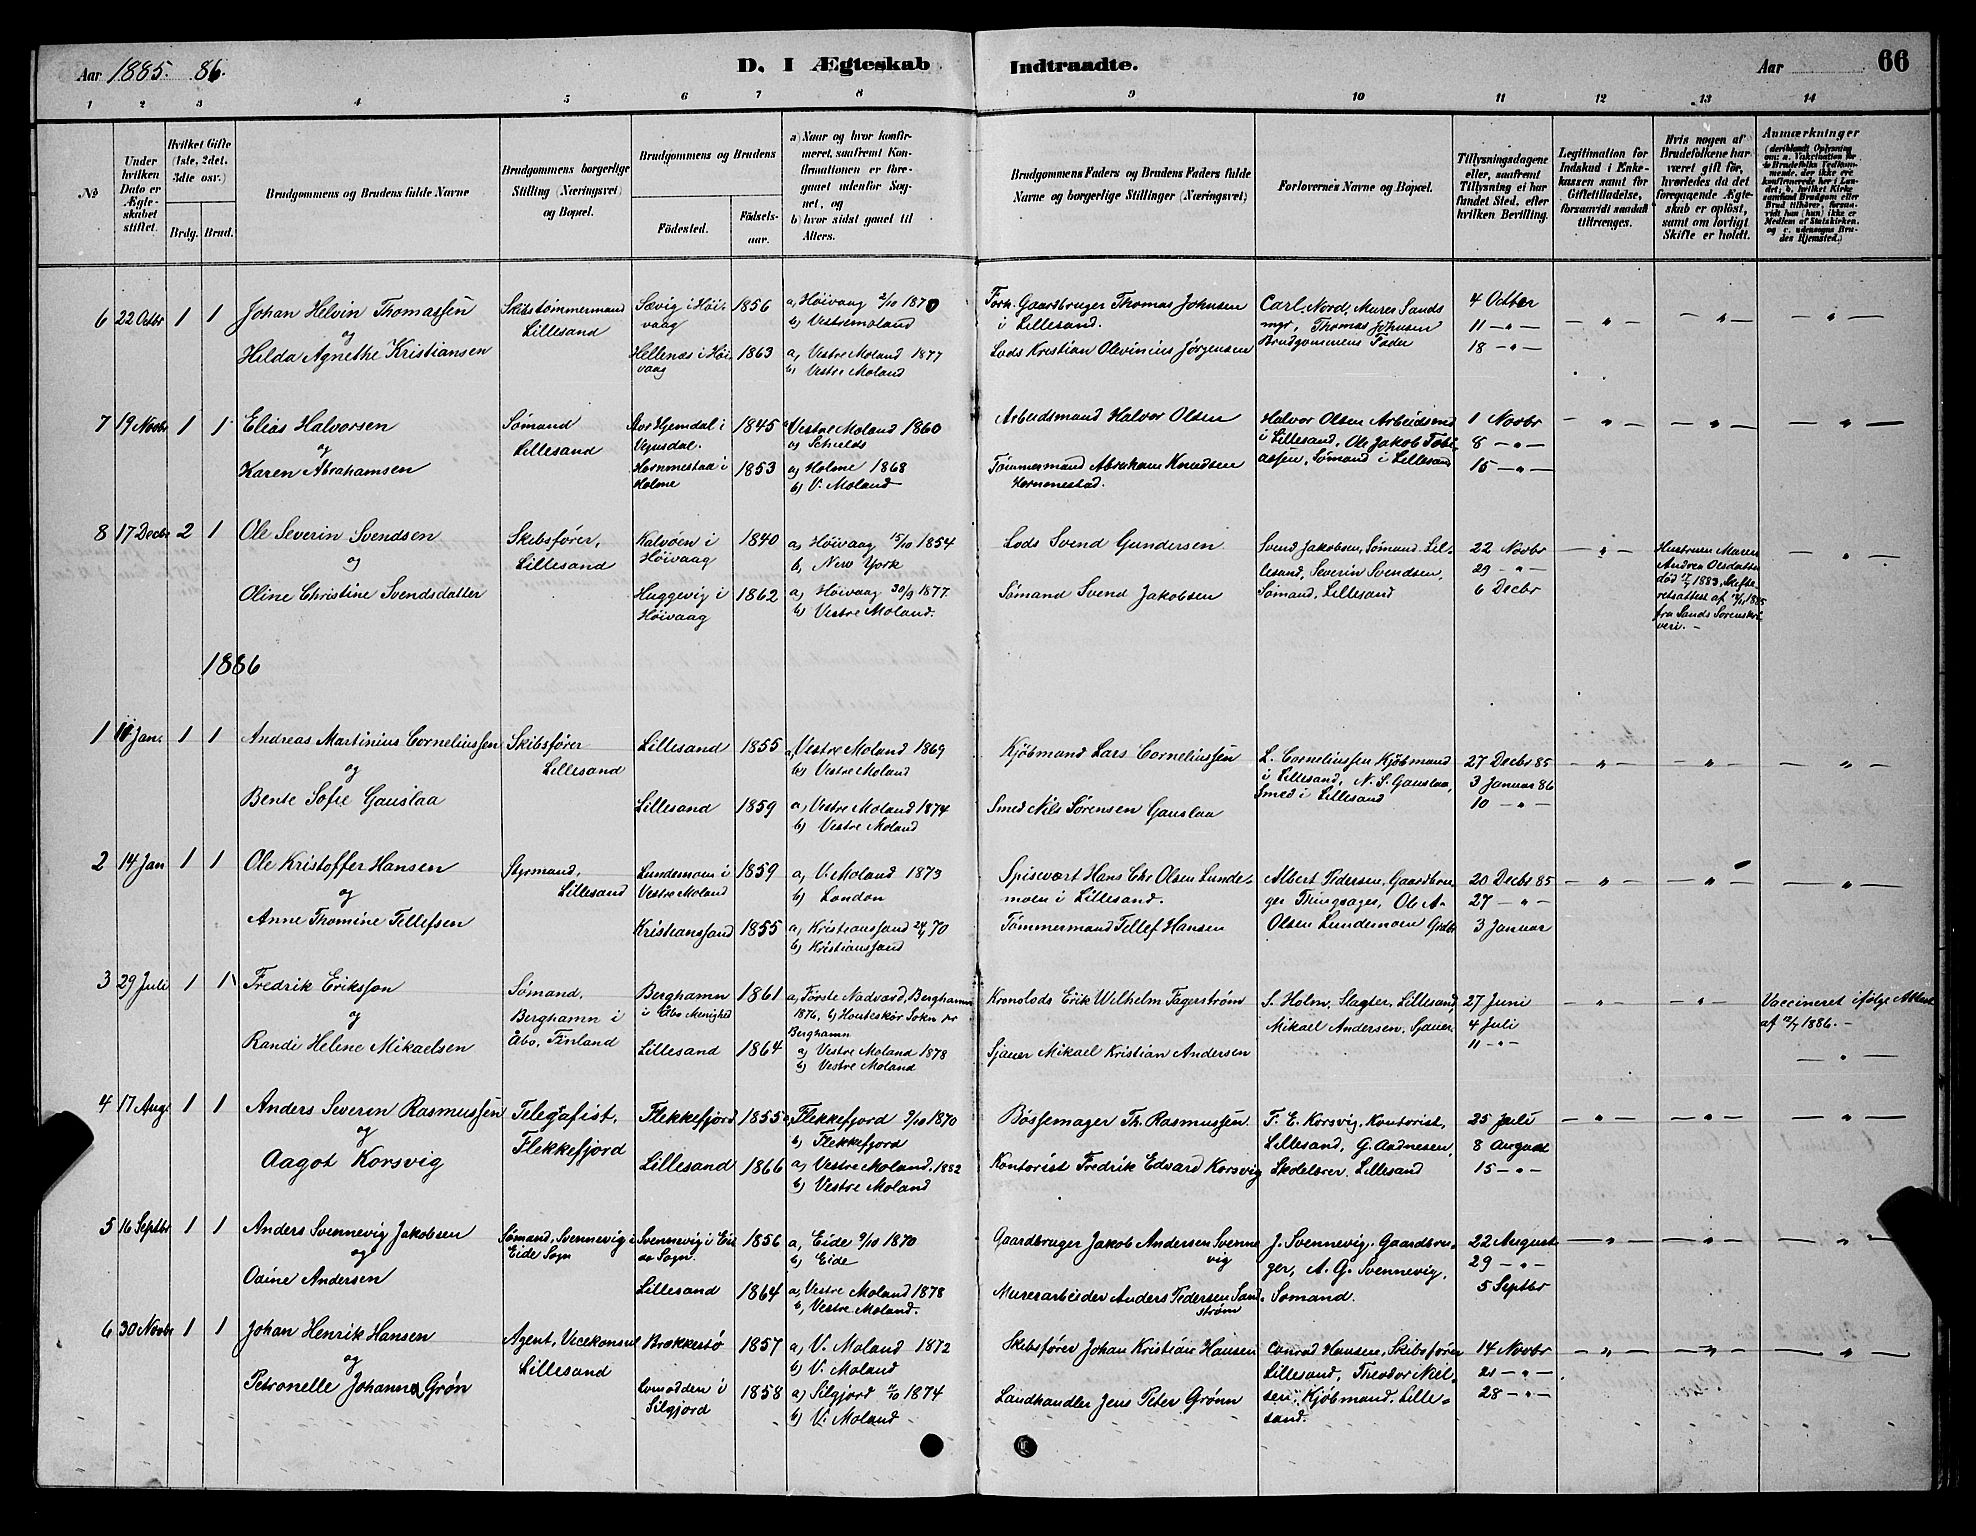 Aar 1885. 86.
D. I Ægteskab Indtraadte.
Aar
66
1 2 3 4 5 6 7 8 9 10 11 12 13 14
№
Under hvilken Dato er Ægteskabet stiftet.
Hvilket Gifte (1ste, 2det, 3die osv.)
Brdg. Brud.
Brudgommens og Brudens fulde Navne
Brudgommens borgerlige Stilling (Næringsvei) og Bopæl.
Brudgommens og Brudens
Födested.
Födselsaar.
a) Naar og hvor konfirmeret, saafremt Konfirmationen er foregaaet udenfor Sognet, og
b) hvor sidst gaaet til Alters.
Brudgommens Faders og Brudens Faders fulde Navne og borgerlige Stillinger (Næringsvei)
Forlovernes Navne og Bopæl.
Tillysningsdagene eller, saafremt Tillysning ei har fundet Sted, efter hvilken Bevilling.
Legitimation for Indskud i Enkekassen samt for Giftetilladelse, forsaavidt saadan tiltrænges.
Hvis nogen af Brudefolkene har været gift før, hvorledes da det foregaaende Ægteskab er opløst, samt om lovligt Skifte er holdt.
Anmærkninger (deriblandt Oplysning om: a. Vakcination for de Brudefolks Vedkommende, der ikke ere konfirmerede her i Landet; b. hvilket Kirkesamfund Brudgom eller Brud tilhører, forsaavidt han (hun) ikke er Medlem af Statskirken, og c. udensogns Brudes Hjemsted.)
6 22 Octbr 1 1 Johan Helvin Thomassen Skibstømmermand Sævig i Høi- 1856 a) Høivaag 2/10 1870 Forh. Gaardbruger Thomas Johnsen Carl Nord, Murer Sands 4 Octber
og Lillesand vaag b) Vestremoland i Lillesand. myr, Thomas Johnsen 11 — " —
Hilda Agnethe Kristiansen Hellenæs i Høi 1863 a) Vestre Moland 1877 Lods Kristian Olevinius Jørgensen Brudgommens Fader 18 — " —
vaag b) Vestre Moland
7 19 Novbr 1 1 Elias Halvorsen Sømand Aor Hjemdal i 1845 Vestre Moland 1860 Arbeidsmand Halvor Olsen Halvor Olsen Arbeidsmd 1 Novbr
og Lillesand Vegusdal. b) Schields i Lillesand, Ole Jakob Tobi 8 — " —
Karen Abrahamsen Hornnestad i 1853 a) Holme 1868 Tømmermand Abraham Knudsen assen, Sømand i Lillesand 15 — " —
Holme b) V. Moland Hornnestad.
8 17 Decbr 2 1 Ole Severin Svendsen Skibsfører, Kalvøen i 1840 a) Høivaag 15/10 1854 Lods Svend Gundersen Svend Jakobsen, Sømand Lil- 22 Novbr Hustruen Maren
og Lillesand Høivaag b) New York lesand, Severin Svendsen, 29 — " — Andrea Olsdatter
Oline Christine Svendsdatter Huggevig i 1862 a) Høivaag 30/9 1877. Sømand Svend Jakobsen Sømand, Lillesand 6 Decbr død 1883, Skifte
Høivaag b) Vestre Moland. retsattest af 1885
fra Sands Sorenskri
veri. —
1886
1 11 Jan. 1 1 Andreas Martinius Corneliussen Skibsfører Lillesand 1855 a) Vestre Moland 1869 Kjøbmand Lars Corneliussen L. Corneliussen Kjøbmand 27 Decbr 85
og Lillesand b) Vestre Moland i Lillesand, N. S. Gauslaa, 3 Januar 86
Bente Sofie Gauslaa Lillesand 1859 a) Vestre Moland 1874 Smed Nils Sørensen Gauslaa Smed i Lillesand 10 — " —
b) Vestre Moland
2 14 Jan 1 1 Ole Kristoffer Hansen Styrmand, Lundemoen i 1859 a) V. Moland 1873 Spisevært Hans Chr Olsen Lunde- Albert Pedersen, Gaardbru- 20 Decbr 85
og Lillesand Vestre Moland b) London moen i Lillesand. ger Thingsager, Ole A- 27 — " —
Anne Thomine Tellefsen Kristianssand 1855 a) Kristianssand 24/4 70 Tømmermand Tellef Hansen Olsen Lundemoen Gdbr 3 Januar
b) Kristianssand
3 29 Juli 1 1 Fredrik Eriksson Sømand, Berghamn 1861 a) Förste Nadvard, Berghamn Kronolods Erik Wilhelm Fagerström S. Holm, Slagter, Lillesand, 27 Juni Vaccineret ifølge Attest
og Berghamn i i Åbo Menighed 1876. b) Houteskör Sokn pr Mikael Andersen, Sjauer 4 Juli af 12/7 1886. —
Randi Helene Mikaelsen Åbo, Finland Berghamn 11 — " —
Lillesand 1864 a) Vestre Moland 1878 Sjauer Mikael Kristian Andersen
b) Vestre Moland
4 17 Aug. 1 1 Anders Severin Rasmussen Telegrafist, Flekkefjord 1855 a) Flekkefjord 9/10 1870 Bøssemager Th. Rasmussen F. E. Korsvig, Kontorist, 25 Juli
og Flekkefjord b) Flekkefjord Lillesand, G. Aadnesen, 8 August
Aagot Korsvig Lillesand 1866 a) Vestre Moland, 1882 Kontorist Fredrik Edvard Korsvig Skolelærer, Lillesand 15 — " —
b) Vestre Moland
5 16 Septbr 1 1 Anders Svennevig Jakobsen Sømand, Svennevig i Svennevig i Ei 1856 a) Eide 9/10 1870 Gaardbruger Jakob Andersen Svenne J. Svennevig, Gaardbru- 22 August
og Eide Sogn de Sogn. b) Eide vig ger, A. G. Svennevig, 29 — " —
Odine Andersen Lillesand 1864 a) Vestre Moland 1878 Murerarbeider Anders Pedersen Sand. Sømand. 5 Septbr
b) Vestre Moland. strøm
6 30 Novbr 1 1 Johan Henrik Hansen Agent, Vicekonsul Brækkestø 1857 a) V. Moland 1872 Skibsfører Johan Kristian Hansen Conrad Hansen, Skibsfører 14 Novbr
og Lillesand b) V. Moland Lillesand, Theodor Niel- 21 — " —
Petronelle Johanne Grøn Lomodden i 1858 a) Silgjord 1874 Landhandler Jens Peter Grønn sen, Kjøbmand, Lille- 28 — " —
Silgjord b) V. Moland sand.